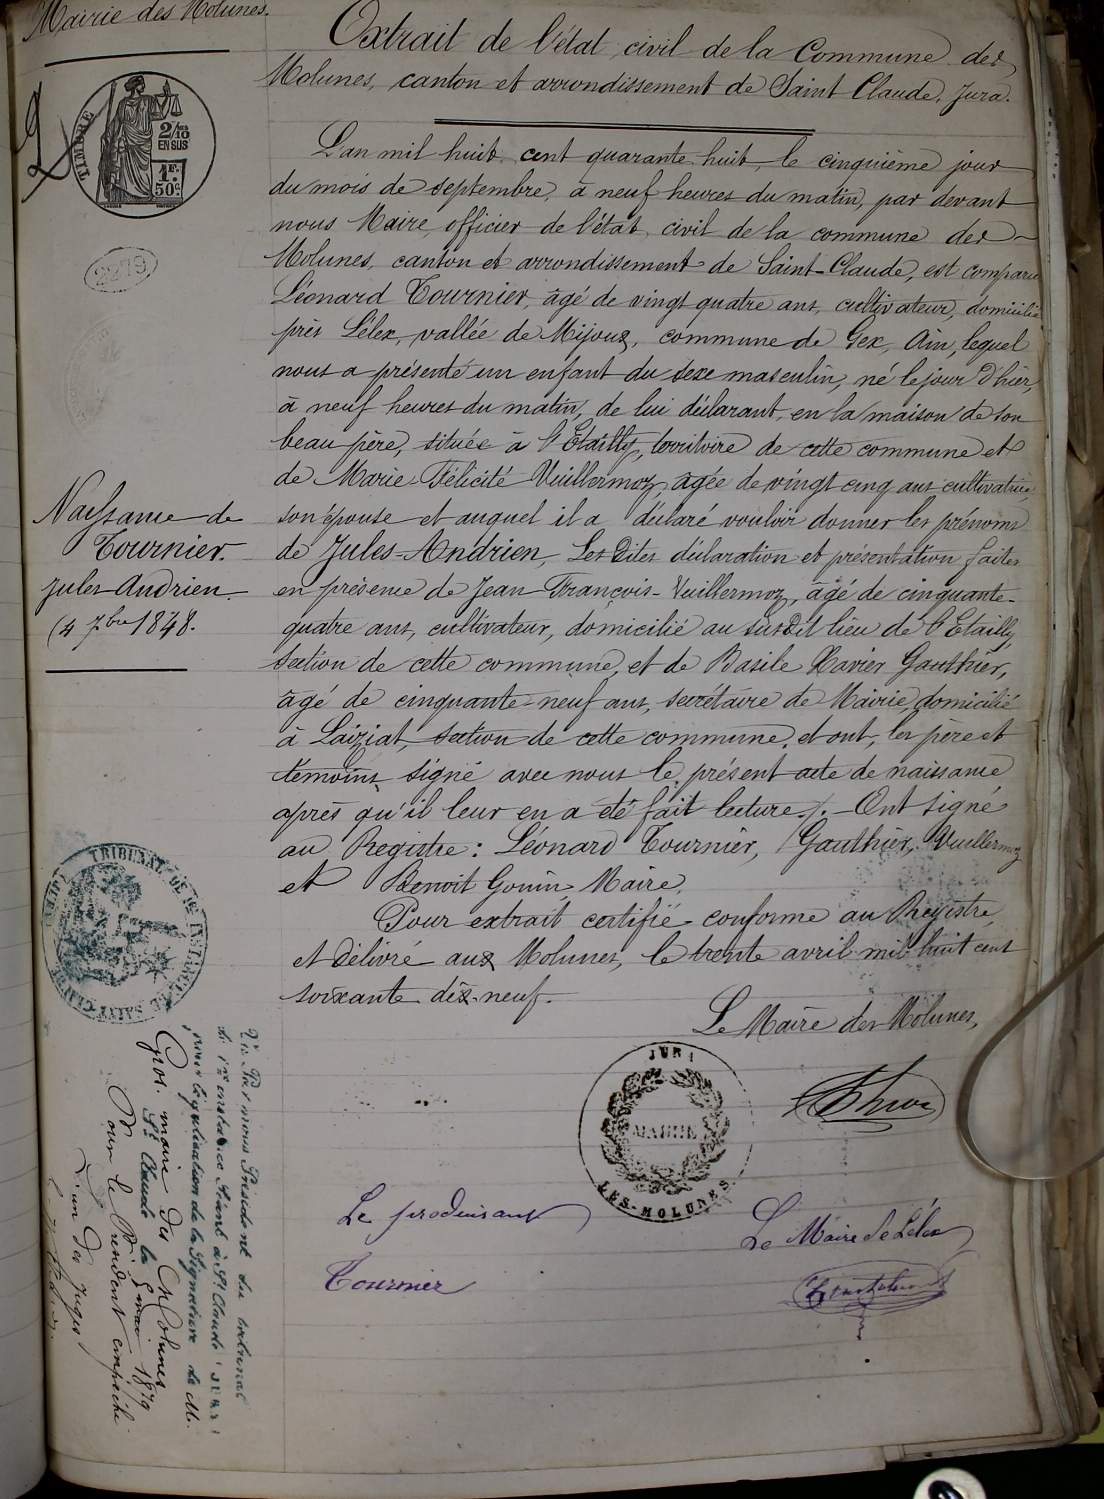 Mairie des Molunes.
TIMBRE
2/10
EN SUS
1F.
50c.
2279
Naissance de
Tournier.
Jules-Andrien.
(4 7bre 1848.
Extrait de l'état civil de la Commune des
Molunes, canton et arrondissement de Saint Claude, Jura.
L'an mil huit cent quarante huit, le cinquième jour
du mois de septembre, à neuf heures du matin, par devant
nous Maire, officier de l'état civil de la commune des
Molunes, canton et arrondissement de Saint-Claude, est comparu
Léonard Tournier, âgé de vingt quatre ans, cultivateur, domicilié
près Lélex, vallée de Mijoux, commune de Gex, Ain, lequel
nous a présenté un enfant du sexe masculin, né le jour d'hier,
à neuf heures du matin, de lui déclarant, en la maison de son
beau père, située à l'Etailly, territoire de cette commune et
de Marie-Félicité Vuillermoz, âgée de vingt cinq ans cultivatrice
son épouse et auquel il a déclaré vouloir donner les prénoms
de Jules-Andrien, Les dites déclaration et présentation faites
en présence de Jean-François-Vuillermoz, âgé de cinquante-
quatre ans, cultivateur, domicilié au susdit lieu de l'Etailly,
section de cette commune, et de Basile Xavier Gauthier,
âgé de cinquante-neuf ans, secrétaire de Mairie, domicilié
à Laiziat, section de cette commune, et ont, les père et
témoins signé avec nous le présent acte de naissance
après qu'il leur en a été fait lecture. /. Ont signé
au Registre: Léonard Tournier, Gauthier, Vuillermoz
et Benoit Gouin, Maire.
Pour extrait certifié conforme au Registre,
et délivré aux Molunes, le trente avril mil huit cent
soixante-dix-neuf.
Le Maire des Molunes,
JURA
MAIRIE
LES-MOLUNES
Le produisant
Tournier
Le Maire de Lélex
TRIBUNAL DE 1re INSTANCE SAINT CLAUDE
Vu Par nous Président du tribunal
de 1re instance séant à St Claude (JURA)
pour légalisation de la Signature de M.
Gros. maire des Molunes
St Claude le 5 mai 1879
Pour le Président empêché
L'un des juges